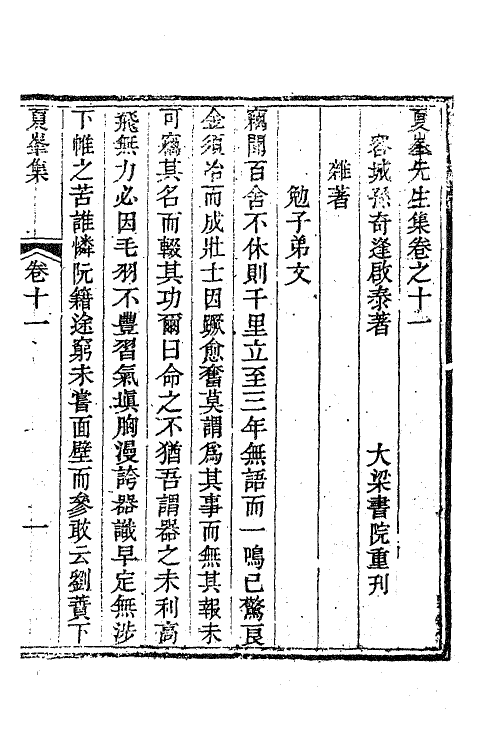 夏峯先生集卷之十一
容城孫奇逢啟泰著　大梁書院重刋
雜著
勉子弟文
竊聞百舍不休則千里立至三年無語而一鳴已驚良
金須冶而成壯士因蹶愈奮莫謂爲其事而無其報未
可竊其名而輟其功爾曰命之不猶吾謂器之未利高
飛無力必因毛羽不豐習氣塡胸漫誇器識早定無涉
下帷之苦誰憐阮籍途窮未嘗面壁而參敢云劉蕡下
夏峯集　卷十一　一